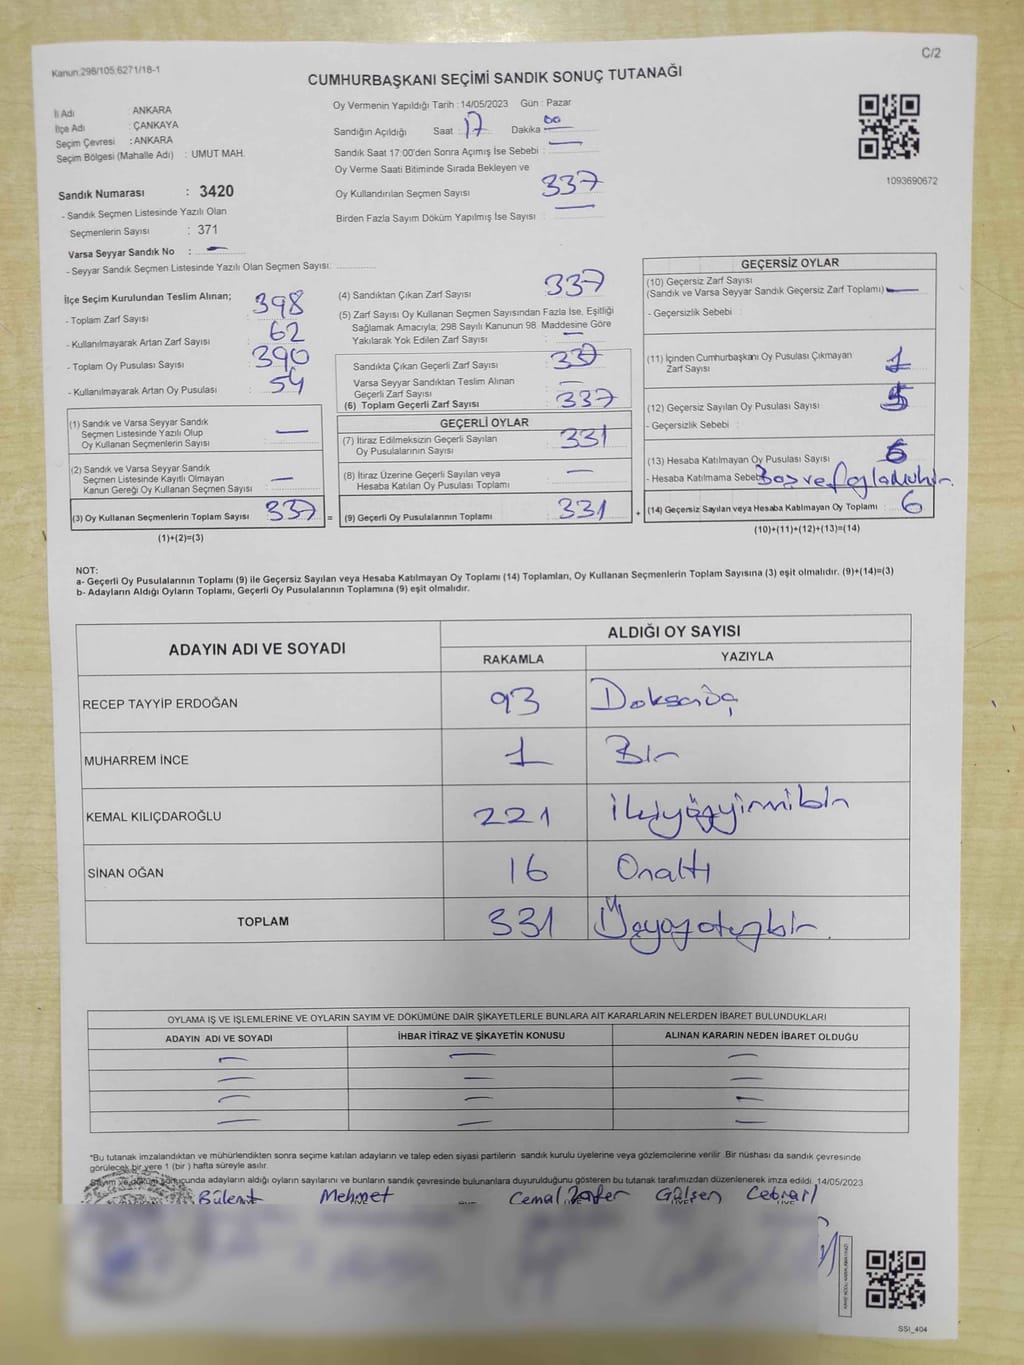 Kanun:298/105;6271/18-1
C/2
CUMHURBAŞKANI SEÇİMİ SANDIK SONUÇ TUTANAĞI
İl Adı : ANKARA
İlçe Adı : ÇANKAYA
Seçim Çevresi : ANKARA
Seçim Bölgesi (Mahalle Adı) : UMUT MAH.
Sandık Numarası : 3420
- Sandık Seçmen Listesinde Yazılı Olan
Seçmenlerin Sayısı : 371
Varsa Seyyar Sandık No : —
- Seyyar Sandık Seçmen Listesinde Yazılı Olan Seçmen Sayısı:
Oy Vermenin Yapıldığı Tarih : 14/05/2023 Gün : Pazar
Sandığın Açıldığı Saat : 17 Dakika 00
Sandık Saat 17:00'den Sonra Açımış İse Sebebi : —
Oy Verme Saati Bitiminde Sırada Bekleyen ve
Oy Kullandırılan Seçmen Sayısı 337
Birden Fazla Sayım Döküm Yapılmış İse Sayısı : —
1093690672
İlçe Seçim Kurulundan Teslim Alınan;
- Toplam Zarf Sayısı : 398
- Kullanılmayarak Artan Zarf Sayısı : 62
- Toplam Oy Pusulası Sayısı : 390
- Kullanılmayarak Artan Oy Pusulası : 54
(1) Sandık ve Varsa Seyyar Sandık
Seçmen Listesinde Yazılı Olup
Oy Kullanan Seçmenlerin Sayısı : —
(2) Sandık ve Varsa Seyyar Sandık
Seçmen Listesinde Kayıtlı Olmayan
Kanun Gereği Oy Kullanan Seçmen Sayısı : —
(3) Oy Kullanan Seçmenlerin Toplam Sayısı : 337 =
(1)+(2)=(3)
(4) Sandıktan Çıkan Zarf Sayısı : 337
(5) Zarf Sayısı Oy Kullanan Seçmen Sayısından Fazla İse, Eşitliği
Sağlamak Amacıyla, 298 Sayılı Kanunun 98. Maddesine Göre
Yakılarak Yok Edilen Zarf Sayısı : —
Sandıkta Çıkan Geçerli Zarf Sayısı : 337
Varsa Seyyar Sandıktan Teslim Alınan
Geçerli Zarf Sayısı : —
(6) Toplam Geçerli Zarf Sayısı : 337
GEÇERLİ OYLAR
(7) İtiraz Edilmeksizin Geçerli Sayılan
Oy Pusulalarının Sayısı : 331
(8) İtiraz Üzerine Geçerli Sayılan veya
Hesaba Katılan Oy Pusulası Toplamı : —
(9) Geçerli Oy Pusulalarının Toplamı : 331 +
GEÇERSİZ OYLAR
(10) Geçersiz Zarf Sayısı
(Sandık ve Varsa Seyyar Sandık Geçersiz Zarf Toplamı) : —
- Geçersizlik Sebebi :
(11) İçinden Cumhurbaşkanı Oy Pusulası Çıkmayan
Zarf Sayısı : 1
(12) Geçersiz Sayılan Oy Pusulası Sayısı : 5
- Geçersizlik Sebebi :
(13) Hesaba Katılmayan Oy Pusulası Sayısı : 6
- Hesaba Katılmama Sebebi
(14) Geçersiz Sayılan veya Hesaba Katılmayan Oy Toplamı : 6
(10)+(11)+(12)+(13)=(14)
NOT:
a- Geçerli Oy Pusulalarının Toplamı (9) ile Geçersiz Sayılan veya Hesaba Katılmayan Oy Toplamı (14) Toplamları, Oy Kullanan Seçmenlerin Toplam Sayısına (3) eşit olmalıdır. (9)+(14)=(3)
b- Adayların Aldığı Oyların Toplamı, Geçerli Oy Pusulalarının Toplamına (9) eşit olmalıdır.
ADAYIN ADI VE SOYADI ALDIĞI OY SAYISI
RAKAMLA YAZIYLA
RECEP TAYYİP ERDOĞAN 93 Doksanüç
MUHARREM İNCE 1 Bir
KEMAL KILIÇDAROĞLU 221 İkiyüzyirmibir
SİNAN OĞAN 16 Onaltı
TOPLAM 331 Üçyüzotuzbir
OYLAMA İŞ VE İŞLEMLERİNE VE OYLARIN SAYIM VE DÖKÜMÜNE DAİR ŞİKAYETLERLE BUNLARA AİT KARARLARIN NELERDEN İBARET BULUNDUKLARI
ADAYIN ADI VE SOYADI İHBAR İTİRAZ VE ŞİKAYETİN KONUSU ALINAN KARARIN NEDEN İBARET OLDUĞU
— — —
— — —
— — —
— — —
*Bu tutanak imzalandıktan ve mühürlendikten sonra seçime katılan adayların ve talep eden siyasi partilerin sandık kurulu üyelerine veya gözlemcilerine verilir. Bir nüshası da sandık çevresinde
görülecek bir yere 1 (bir ) hafta süreyle asılır.
Sayım ve döküm sonucunda adayların aldığı oyların sayılarını ve bunların sandık çevresinde bulunanlara duyurulduğunu gösteren bu tutanak tarafımızdan düzenlenerek imza edildi. 14/05/2023
Bülent Mehmet Cemal Zafer Gülşen Cebrail
SSI_404